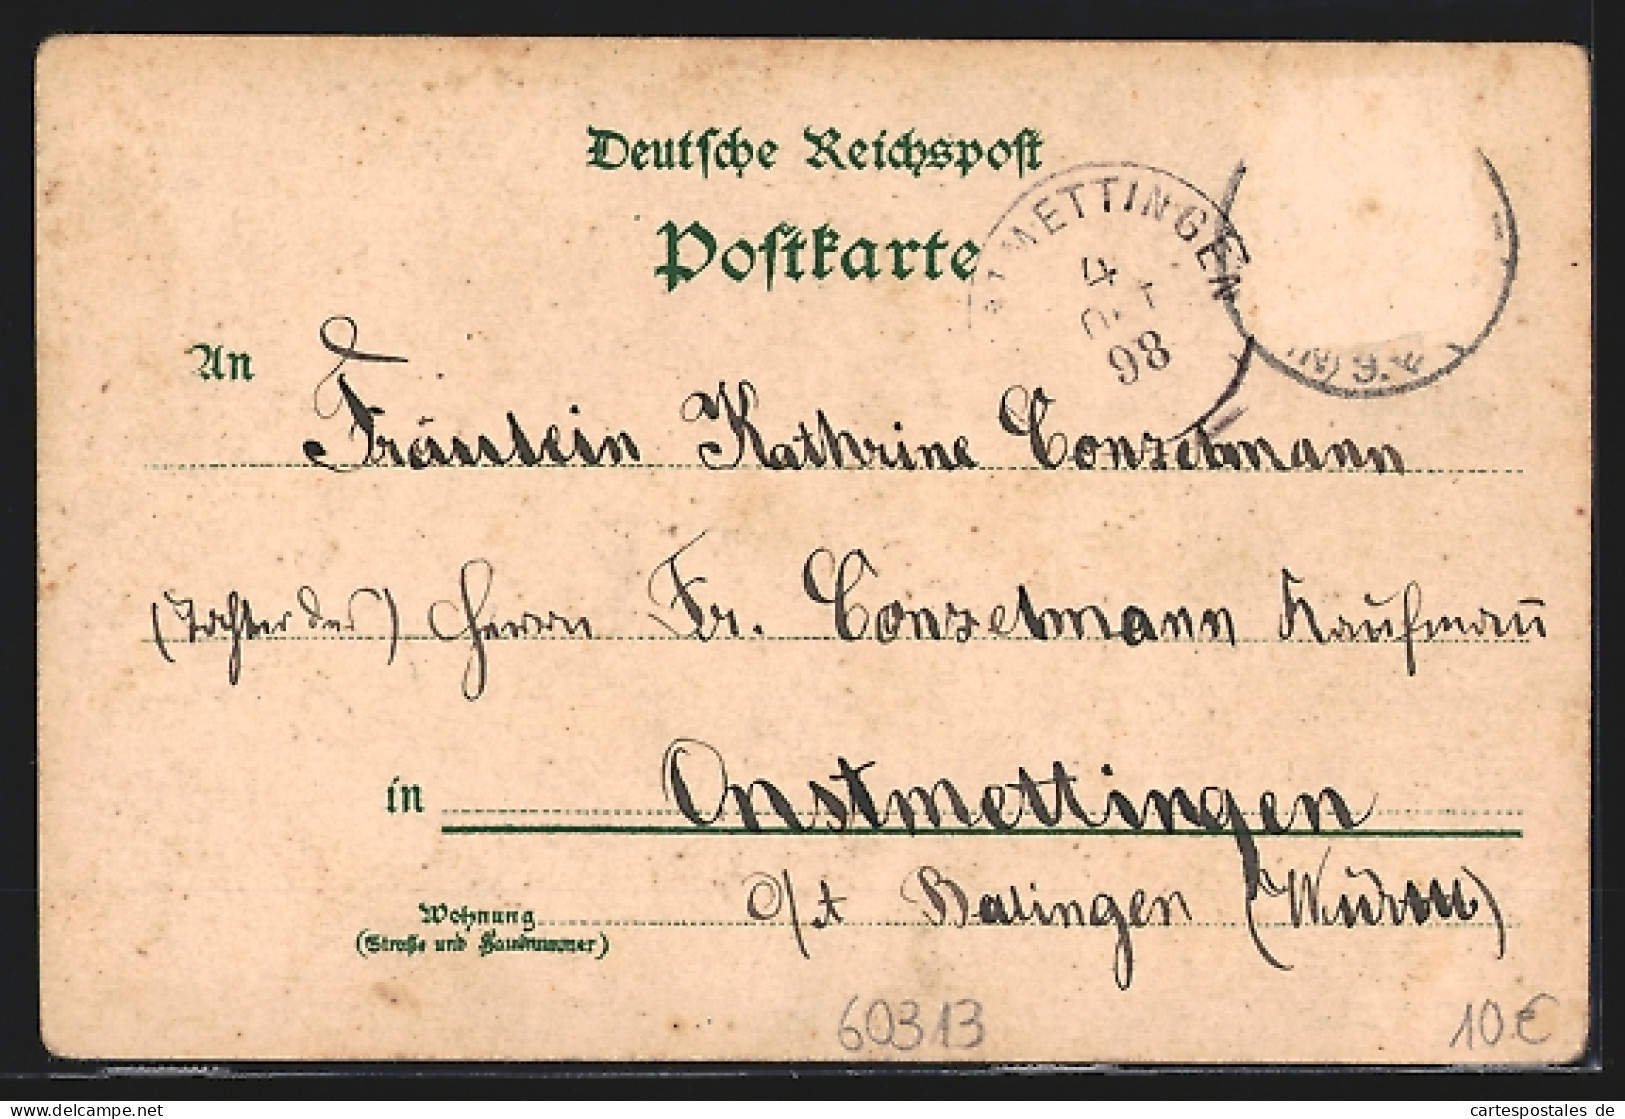 Deutsche Reichspost
Postkarte
METTINGEN
4
98
An
Fräulein Kathrine Conzelmann
(Tochter des) Herrn Fr. Conzelmann Kaufmañ
in Onstmettingen
Wohnung
(Straße und Hausnummer)
o/t Balingen (Würm)
60313
10€
cartespostales de